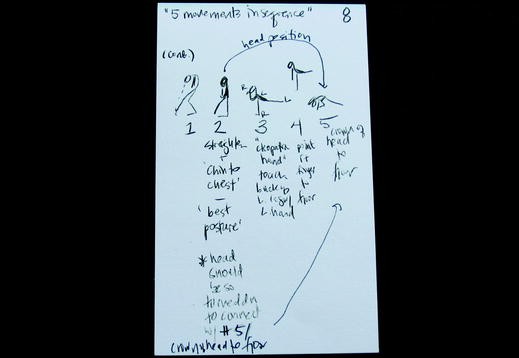 "5 movements in sequence"
8
head position
(cont.)
R L
L
R
1 2 3 4 5
straighten
+
'chin to
chest'
—
'best
posture'
* head
should
be so
turned dn
to connect
w/ #5/
crown of head to floor
"cleopatra
hand"
touch
back of
L leg w/
L hand
point
R
finger
to
floor
crown of
head
to
floor